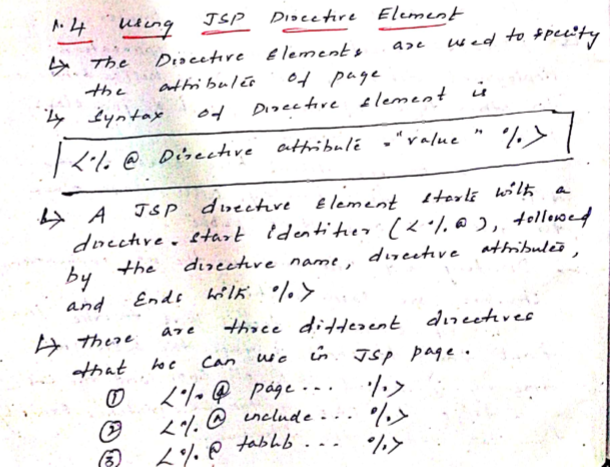 1.4 using JSP Directive Element
↳ The Directive Elements are used to specify
the attributes of page
↳ Syntax of Directive element is
<% @ Directive attribute = "value" %>
↳ A JSP directive Element starts with a
directive. start identifier (<%@), followed
by the directive name, directive attributes,
and Ends with %>
↳ There are three different directives
that we can use in JSP page.
① <% @ page ... %>
② <% @ include ... %>
③ <% @ ... %>